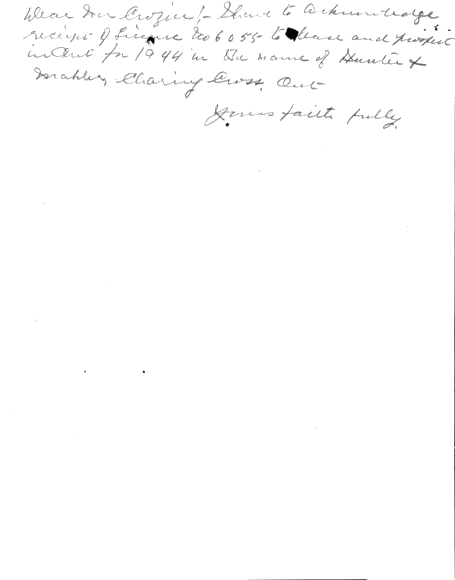 Dear Mr Crozier:- I have to acknowledge
receipt of License No 6055 to lease and prospect
in Ont for 1944 in the name of Hunter &
Charing Cross, Ont
Yours faithfully,